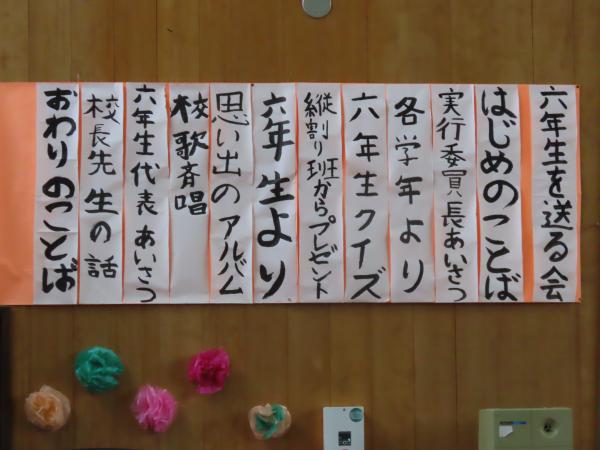 六年生を送る会
はじめのことば
実行委員長あいさつ
各学年より
六年生クイズ
縦割り班からプレゼント
六年生より
思い出のアルバム
校歌斉唱
六年生代表あいさつ
校長先生の話
おわりのことば